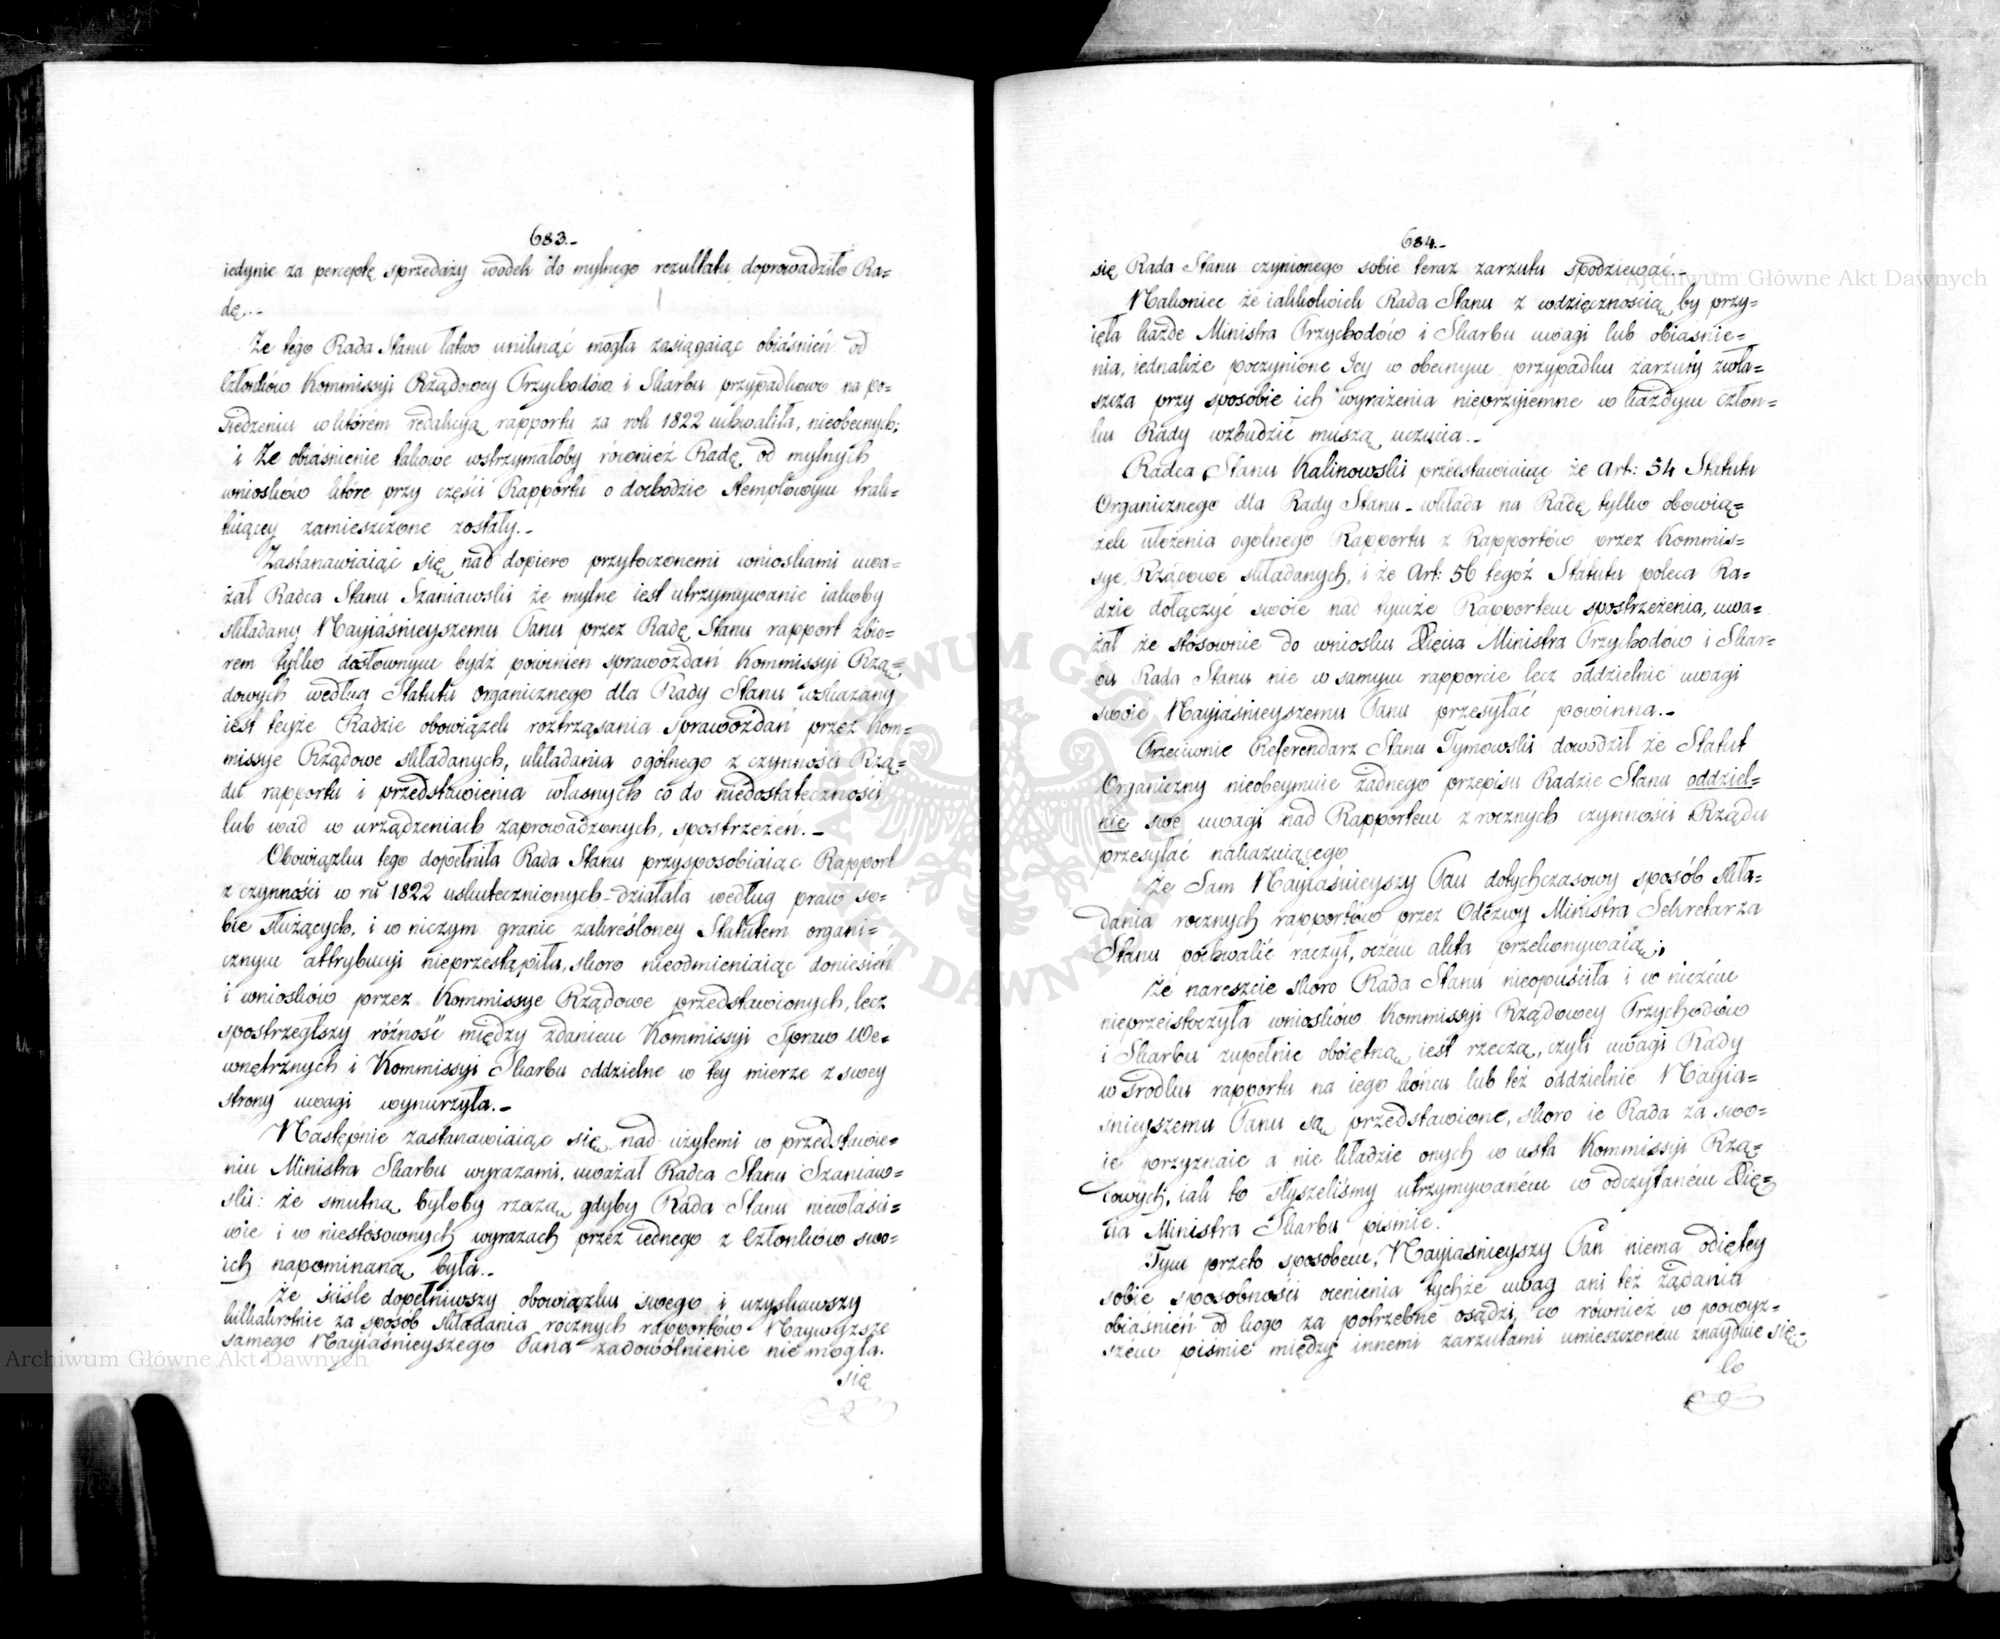 683.-
iedynie za perceptę sprzedaży wodek do mylnego rezultatu doprowadziło Ra=
dę.-
Że tego Rada Stanu łatwo uniknąć mogła zasiągaiąc obiaśnień od
Członków Kommissyi Rządowey Przychodów i Skarbu przypadkowo na po=
siedzeniu w którém redakcyą rapportu za rok 1822 uchwaliła, nieobecnych;
i Że obiaśnienie takowe wstrzymałoby również Radę od mylnych
wniosków które przy części Rapportu o dochodzie stemplowym trak=
tuiącey zamieszczone zostały.-
Zastanawiaiąc się nad dopiero przytoczonemi wnioskami uwa=
żał Radca Stanu Szaniawski że mylne iest utrzymywanie iakoby
składany Nayiaśnieyszemu Panu przez Radę Stanu rapport zbio=
rem tylko dosłownym bydź powinien sprawozdań Kommissyi Rzą=
dowych według Statutu organicznego dla Rady Stanu wskazany
iest teyże Radzie obowiązek roztrząsania Sprawozdań przez Kom=
missye Rządowe składanych, układania ogólnego z czynności Rzą=
du rapportu i przedstawienia własnych co do niedostateczności
lub wad w urządzeniach zaprowadzonych, spostrzeżeń.-
Obowiązku tego dopełniła Rada Stanu przysposobiaiąc Rapport
z czynności w rū 1822 uskutecznionych-działała według praw so=
bie służących, i w niczym granic zakreśloney Statutem organi=
cznym attrybucyi nieprzestąpiła, skoro nieodmieniaiąc doniesień
i wniosków przez Kommissye Rządowe przedstawionych, lecz
spostrzegłszy różność między zdaniem Kommissyi Spraw We=
wnętrznych i Kommissyi Skarbu oddzielne w tey mierze z swey
strony uwagi wynurzyła.-
Następnie zastanawiaiąc się nad użytemi w przedstawie=
niu Ministra Skarbu wyrazami, uważał Radca Stanu Szaniaw=
ski: że smutną byłoby rzeczą, gdyby Rada Stanu niewłaści=
wie i w niestosownych wyrazach przez iednego z Członków swo=
ich napominaną była.-
Że ściśle dopełniwszy obowiązku swego i uzyskawszy
kilkakrotnie za sposób składania rocznych rapportów Naywyższe
samego Nayiaśnieyszego Pana zadowolnienie nie mogła.
się
684.-
się Rada Stanu czynionego sobie teraz zarzutu spodziewać.-
Nakoniec że iakkolwiek Rada Stanu z wdzięcznością by przy=
ięła każde Ministra Przychodów i Skarbu uwagi lub obiaśnie=
nia, iednakże poczynione Jey w obecnym przypadku zarzuty zwła=
szcza przy sposobie ich wyrażenia nieprzyiemne w każdym Człon=
ku Rady wzbudzić muszą uczucia.-
Radca Stanu Kalinowski przedstawiaiąc że Art: 54 Statutu
Organicznego dla Rady Stanu - wkłada na Radę tylko obowią=
zek ułożenia ogólnego Rapportu z Rapportów przez Kommis=
sye Rządowe składanych, i że Art: 56 tegoż Statutu poleca Ra=
dzie dołączyć swoie nad tymże Rapportem spostrzeżenia, uwa=
żał że stósownie do wniosku Xięcia Ministra Przychodów i Skar=
bu Rada Stanu nie w samym rapporcie lecz oddzielnie uwagi
swoie Nayiaśnieyszemu Panu przesyłać powinna.-
Przeciwnie Referendarz Stanu Tymowski dowodził że Statut
Organiczny nieobeymuie żadnego przepisu Radzie Stanu oddziel=
nie swe uwagi nad Rapportem z rocznych czynności Rządu
przesyłać nakazuiącego
Że Sam Nayiaśnieyszy Pan dotychczasowy sposób skła=
dania rocznych rapportów przez Odezwy Ministra Sekretarza
Stanu pochwalić raczył, oczém akta przekonywaią;
Że nareszcie skoro Rada Stanu nieopuściła i w niczém
nieprzeistoczyła wniosków Kommissyi Rządowey Przychodów
i Skarbu zupełnie oboiętną iest rzeczą, czyli uwagi Rady
w środku rapportu na iego końcu lub też oddzielnie Nayia=
śnieyszemu Panu są przedstawione, skoro ie Rada za swo=
ie przyznaie a nie kładzie onych w usta Kommissyi Rzą=
dowych, iak to słyszeliśmy utrzymywaném w odczytaném Xię=
cia Ministra Skarbu piśmie.
Tym przeto sposobem, Nayiaśnieyszy Pan niema odiętey
sobie sposobności ocenienia tychże uwag ani też żądania
obiaśnień od kogo za potrzebne osądzi, co również w powyż=
szém piśmie między innemi zarzutami umieszczoném znayduie się.-
Co
Archiwum Główne Akt Dawnych
Archiwum Główne Akt Dawnych
ARCHIWUM GŁÓWNE AKT DAWNYCH